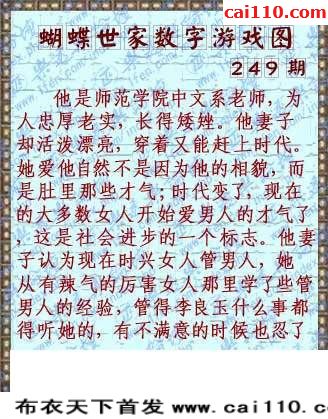 cai110.com
蝴蝶世家数字游戏图
249期
他是师范学院中文系老师，为
人忠厚老实，长得矮矬。他妻子
却活泼漂亮，穿着又能赶上时代。
她爱他自然不是因为他的相貌，而
是肚里那些才气；时代变了，现在
的大多数女人开始爱男人的才气了
，这是社会进步的一个标志。他妻
子认为现在时兴女人管男人，她
从有辣气的厉害女人那里学了些管
男人的经验，管得李良玉什么事都
得听她的，有不满意的时候也忍了
布衣天下首发 www.cai110.c